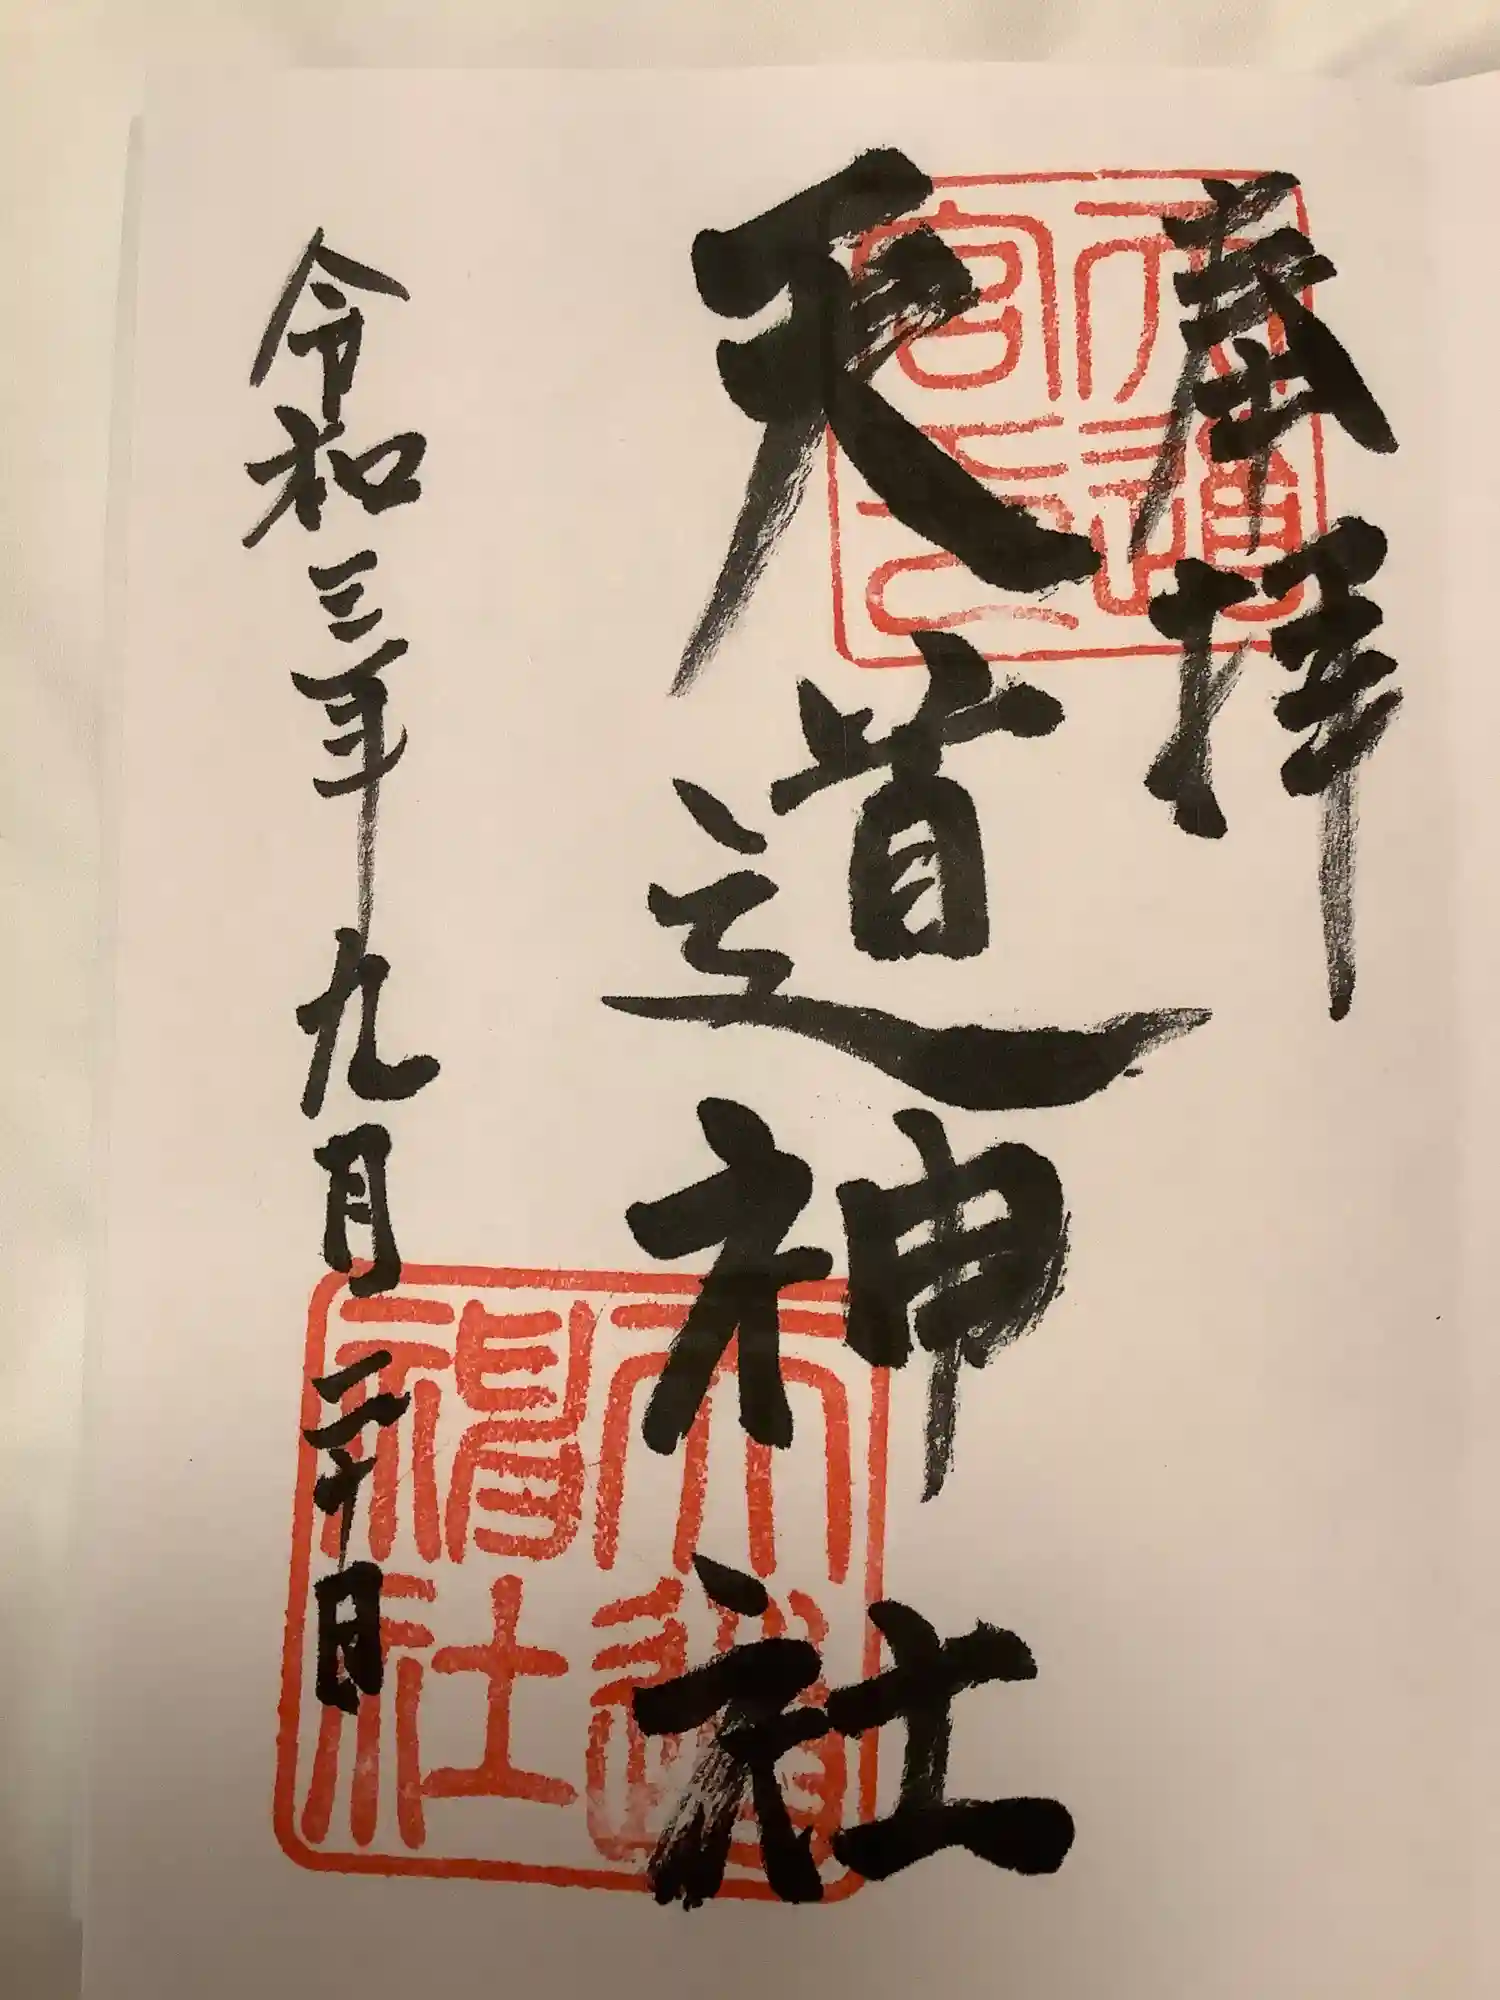 奉拝
天道神社
令和三年九月二十日
天道宮之印
天道神社